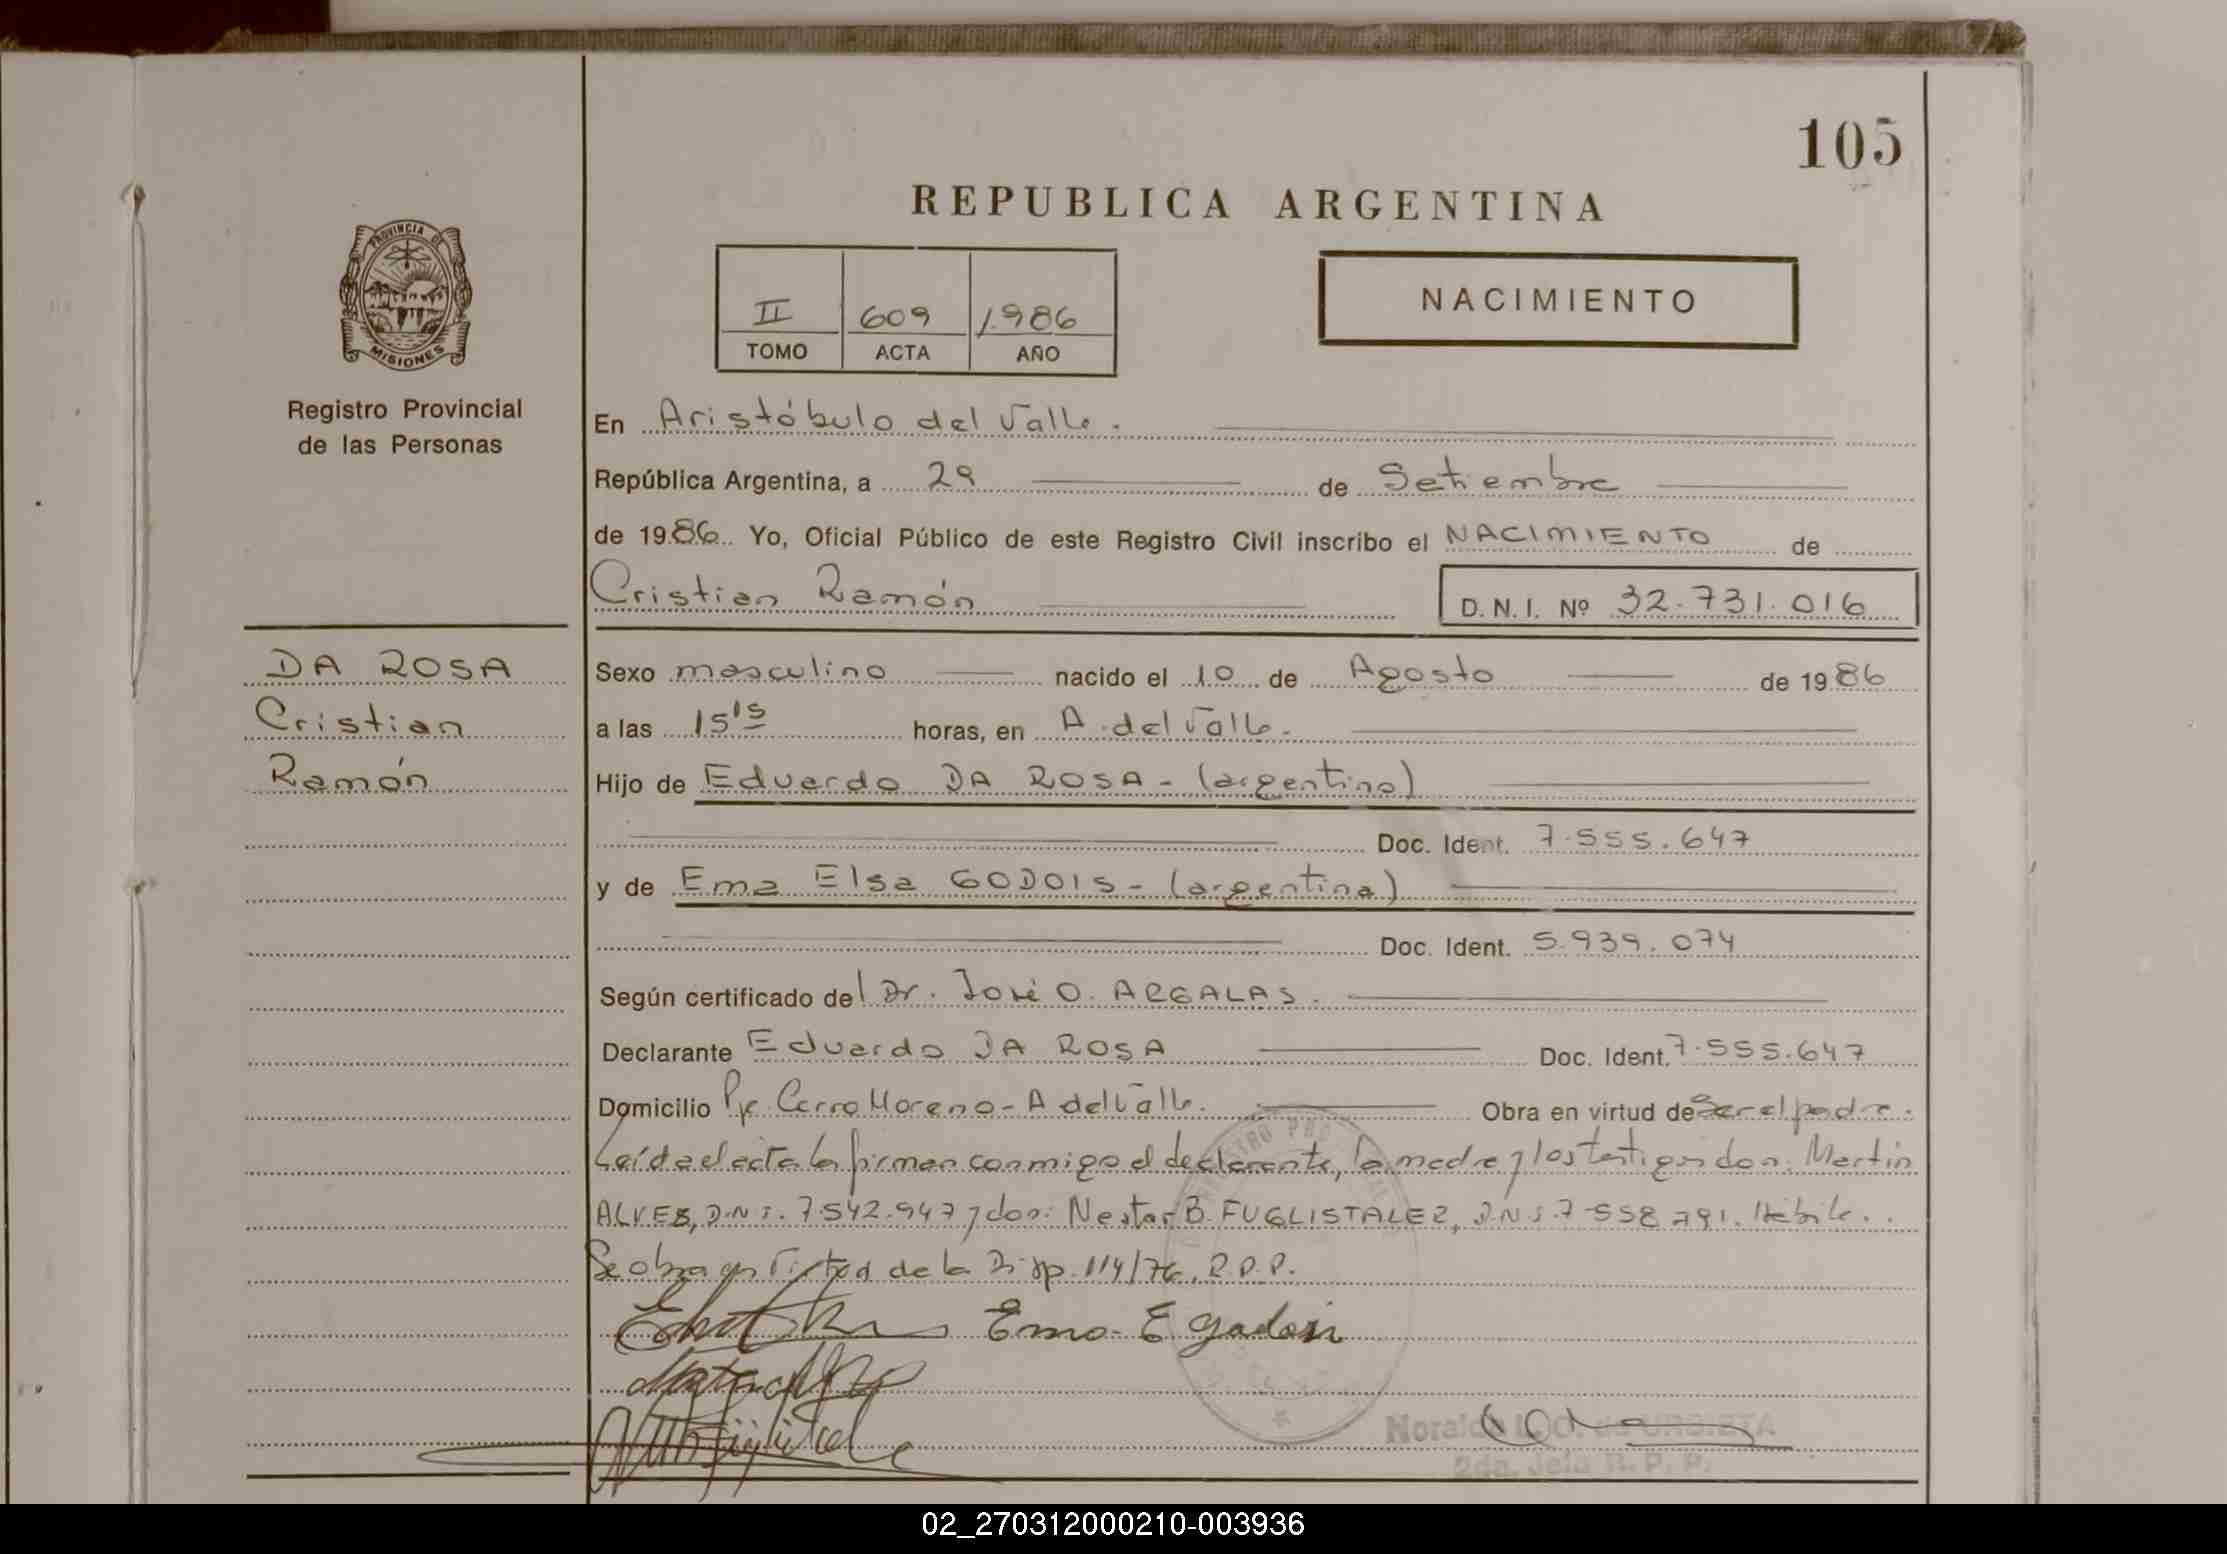 105
REPUBLICA ARGENTINA
PROVINCIA DE
MISIONES
Registro Provincial
de las Personas
II 609 1.986
TOMO ACTA AÑO
NACIMIENTO
En Aristóbulo del Valle.
República Argentina, a 29 de Setiembre
de 1986. Yo, Oficial Público de este Registro Civil inscribo el NACIMIENTO de
Cristian Ramón D.N.I. Nº 32.731.016
DA ROSA
Cristian
Ramón
Sexo masculino nacido el 10 de Agosto de 1986
a las 15'15 horas, en A. del Valle.
Hijo de Eduardo DA ROSA - (argentino)
Doc. Ident. 7.555.647
y de Ema Elsa GODOIS - (argentina)
Doc. Ident. 5.939.074
Según certificado del Dr. José O. ARGALAS.
Declarante Eduardo DA ROSA Doc. Ident. 7.555.647
Domicilio Pje. Cerro Moreno - A del Valle. Obra en virtud de Ser el padre.
Leída el acta la firman conmigo el declarante, la madre y los testigos don: Martin
ALVES, D.N.I. 7.542.947 y don: Nestor B. FUGLISTALER, D.N.I. 7.558.791. Hábile.
Se obra en virtud de la Disp. 114/76. R.P.P.
Ema E Godois
2da. Jefa R. P. P.
02_270312000210-003936